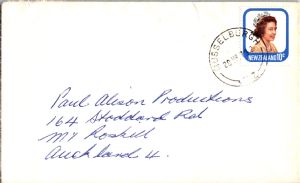 MUSSELBURGH
20
NEW ZEALAND 10c
Paul Alison Productions
164 Stoddard Rd
Mt Roskill
Auckland 4.